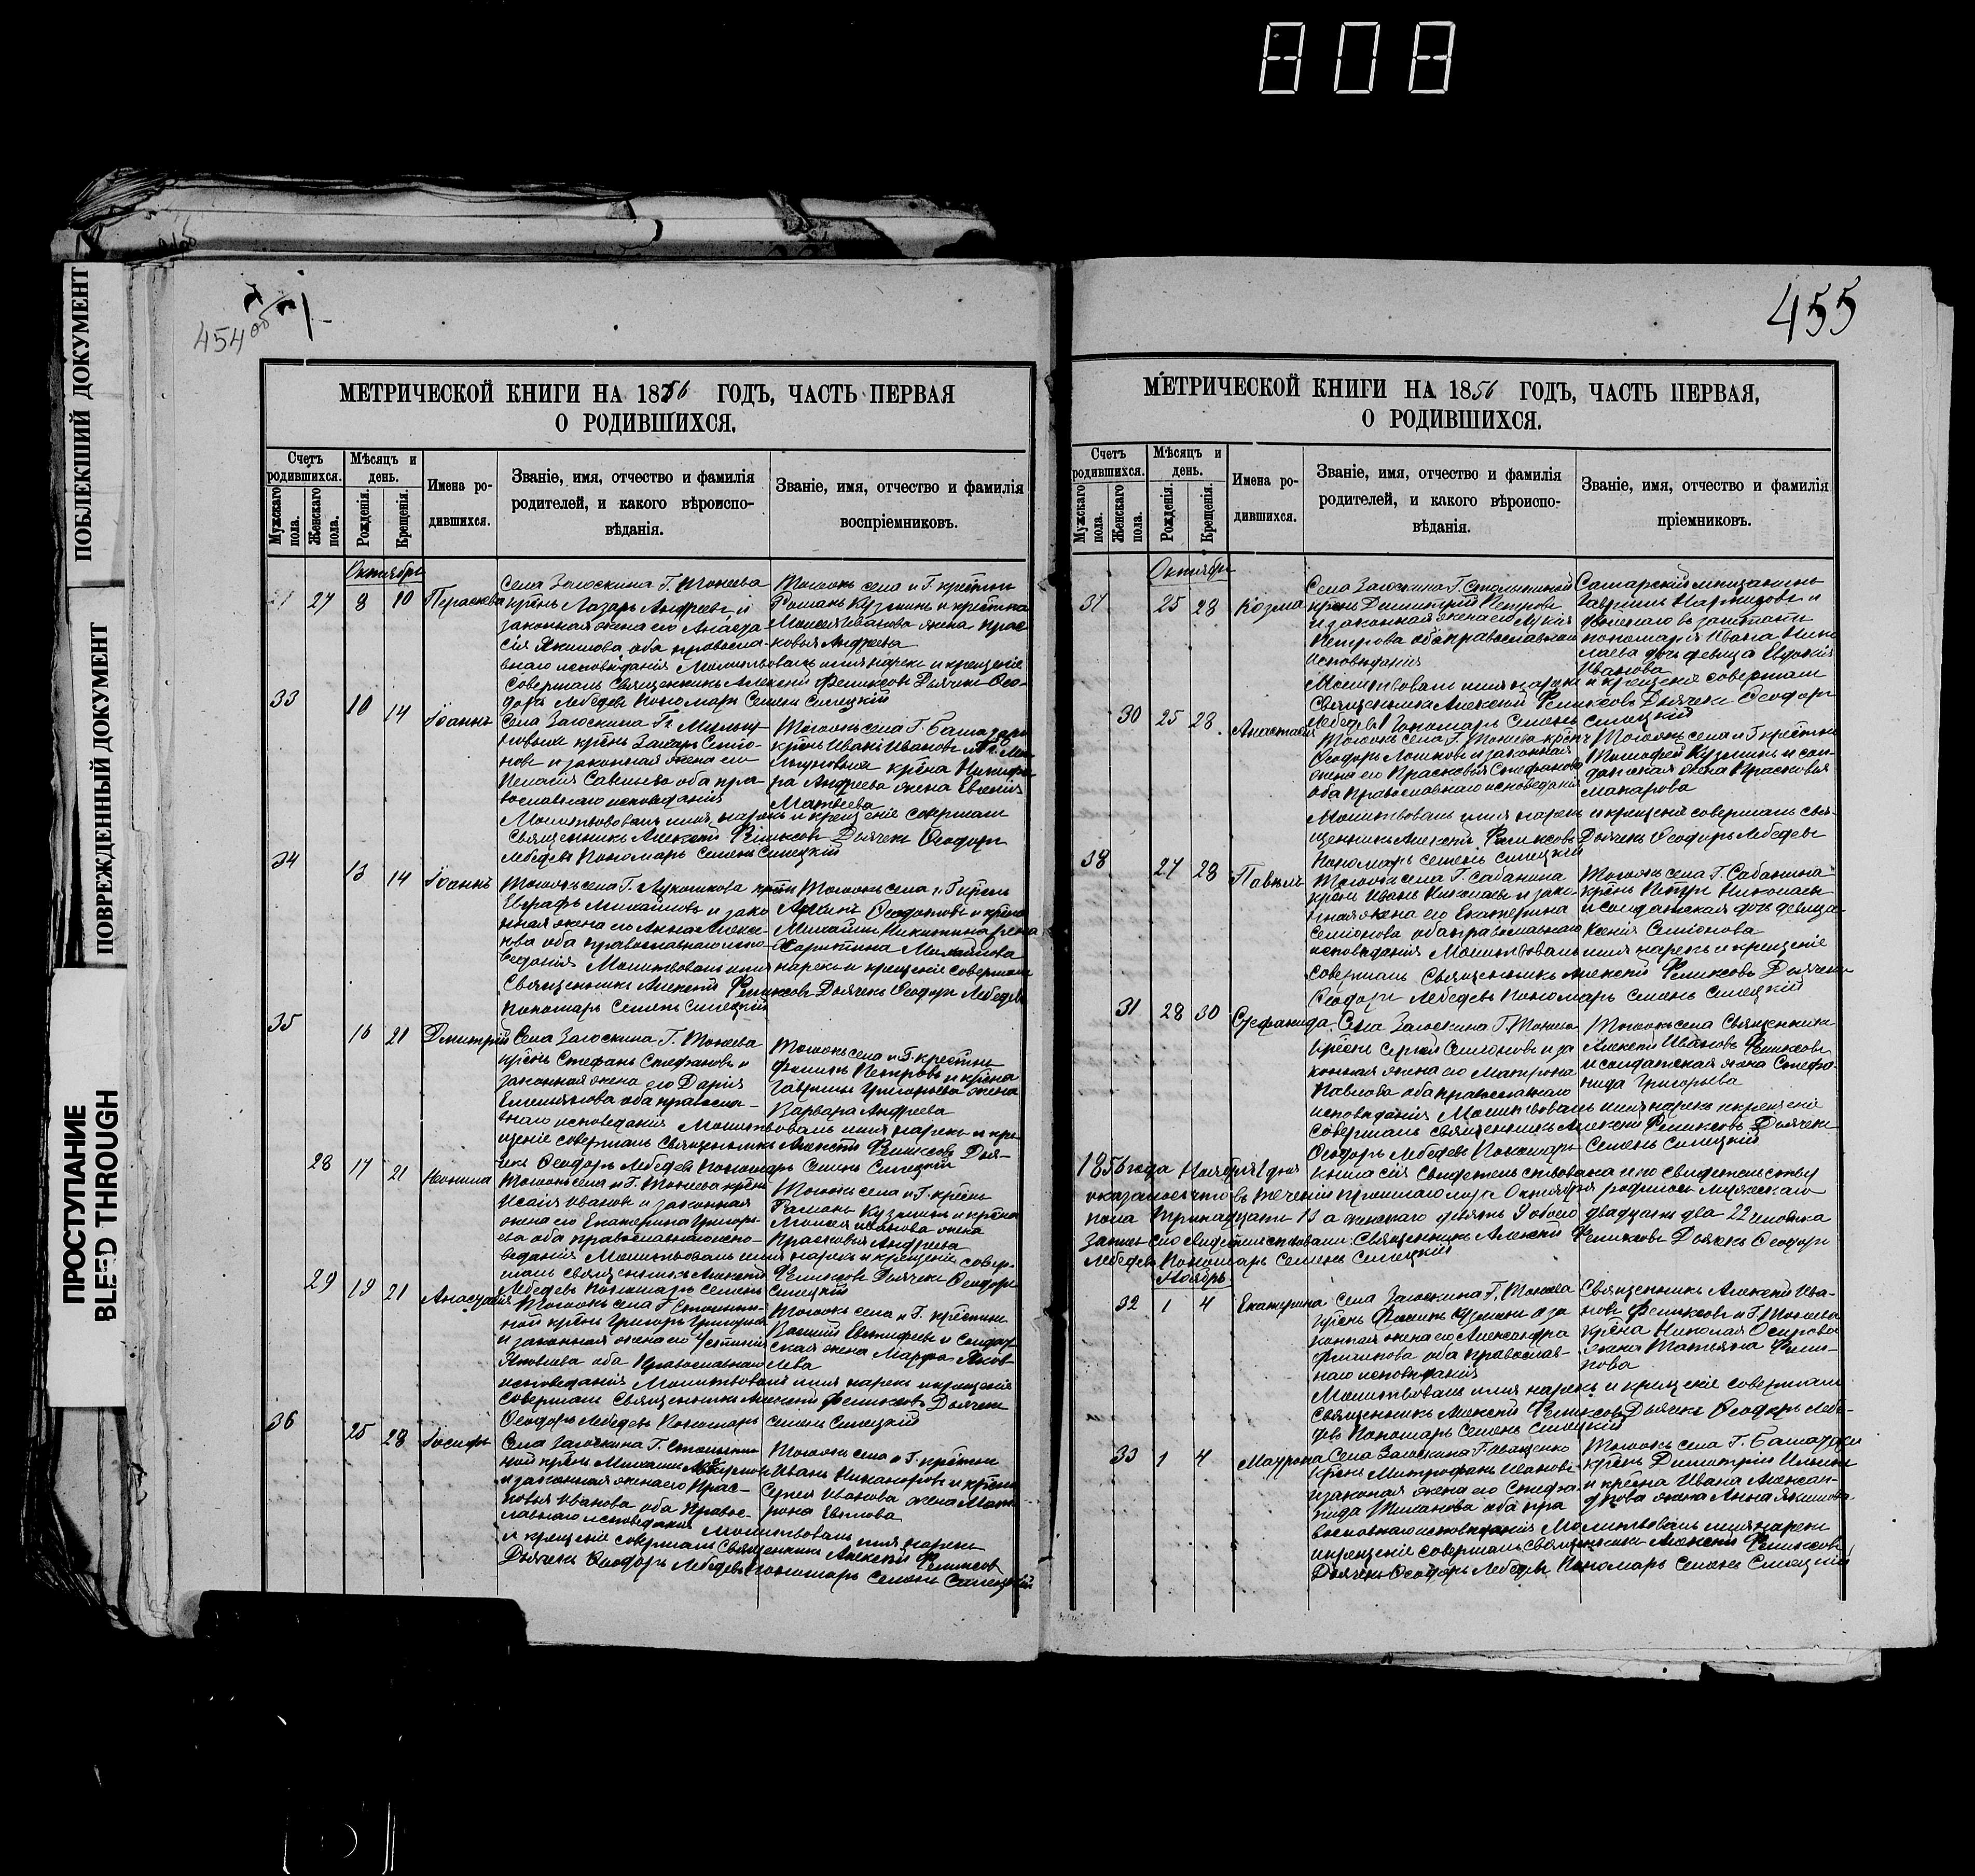 808
ПОБЛЕКШИЙ ДОКУМЕНТ
ПОВРЕЖДЕННЫЙ ДОКУМЕНТ
ПРОСТУПАНИЕ
BLEED THROUGH
454 об
МЕТРИЧЕСКОЙ КНИГИ НА 1856 ГОДЪ, ЧАСТЬ ПЕРВАЯ
О РОДИВШИХСЯ.
Счетъ родившихся.
Мужскаго пола.
Женскаго пола.
Мѣсяцъ и день.
Рожденія.
Крещенія.
Имена родившихся.
Званіе, имя, отчество и фамилія
родителей, и какого вѣроиспо-
вѣданія.
Званіе, имя, отчество и фамилія
воспріемниковъ.
Октябрь
27 8 10 Параскева
Села Загоскина Г. Тонеева
крѣнъ Лазарь Андреевъ и
законная жена его Анаста
сія Якимова, оба правосла-
внаго исповѣданія Молитвовалъ имя нарекъ и крещеніе
совершалъ Священникъ Алексей Феликсовъ Дьячекъ Фео-
доръ Лебедевъ Пономарь Семенъ Смецкій
Тогожъ села и Г. крестьян
Романъ Кузьминъ и крестьяна
Моисея Иванова жена Прас
ковья Андреева
33 10 14 Іоаннъ
Села Загоскина Гг.
крѣнъ Захаръ Семио-
новъ и законная жена его
Пелагія Савельева оба пра-
вославнаго исповѣданія
Молитвовалъ имя нарекъ и крещеніе совершалъ
Священникъ Алексей Феликсовъ Дьячекъ Феодоръ
Лебедевъ Пономарь Семенъ Смецкій
Тогожъ села Г.
крѣнъ Иванъ Ивановъ и
крѣна Никифо-
ра Андреева жена Евгенія
Матвеева
34 13 14 Іоаннъ
Тогожъ села Г. Лукошкова крѣнъ
Евграфъ Михайловъ и зако
нная жена его Анна Алексе-
ева оба православнаго испо-
ведания Молитвовалъ имя нарекъ и крещеніе совершалъ
Священникъ Алексей Феликсовъ Дьячекъ Феодоръ Лебедевъ
Пономарь Семенъ Смецкій
Тогожъ села и Г. крѣнъ
Михаила Никитина жена
Харитина Михайлова
35 16 21 Дмитрій
Села Загоскина Г. Тонеева
крѣнъ Стефанъ Стефановъ и
законная жена его Дарія
Емельянова оба правосла-
внаго исповедания Молитвовалъ имя нарекъ и кре-
щеніе совершалъ Священникъ Алексей Феликсовъ Дья-
чекъ Феодоръ Лебедевъ Пономарь Семенъ Смецкій
Тогожъ села и Г. крестьян
Филипъ Петровъ и крѣна
Гаврилы Григорьева жена
Варвара Андреева
28 17 21
Тогожъ села и Г. Тонеева крѣнъ
Исаія Ивановъ и законная
жена его Екатерина Григорь
ева оба православнаго испо-
ведания Молитвовалъ имя нарекъ и крещеніе совер-
шалъ Священникъ Алексей Феликсовъ Дьячекъ Феодоръ
Лебедевъ Пономарь Семенъ Смецкій
Тогожъ села и Г. крѣнъ
Романъ Кузьминъ и крѣна
Моисея Иванова жена
Прасковья Андреева
29 19 21 Анастасія
Тогожъ села Г. Столыпи-
ной крѣнъ Григорій Григорьевъ
и законная жена его Устинія
Яковлева оба Православнаго
исповедания Молитвовалъ имя нарекъ и крещеніе
совершалъ Священникъ Алексей Феликсовъ Дьячекъ
Феодоръ Лебедевъ Пономарь Семенъ Смецкій
Тогожъ села и Г. крестьян
Василій Евтифеевъ и Солдат
ская жена Марфа Яков-
лева
36 25 28 Іосифъ
Села Загоскина Г. Столыпи
ной крѣнъ Михаилъ
и законная жена его Прас-
ковья Иванова оба Правос-
лавнаго исповедания Молитвовалъ имя нарекъ
и крещеніе совершалъ Священникъ Алексей Феликсовъ
Дьячекъ Феодоръ Лебедевъ Пономарь Семенъ Смецкій
Тогожъ села и Г. крестьян
Иванъ Никаноровъ и крѣна
Сергея Иванова жена Мат
рона
455
МЕТРИЧЕСКОЙ КНИГИ НА 1856 ГОДЪ, ЧАСТЬ ПЕРВАЯ,
О РОДИВШИХСЯ.
Счетъ родившихся.
Мужскаго пола.
Женскаго пола.
Мѣсяцъ и день.
Рожденія.
Крещенія.
Имена родившихся.
Званіе, имя, отчество и фамилія
родителей, и какого вѣроиспо-
вѣданія.
Званіе, имя, отчество и фамилія
пріемниковъ.
Октябрь
37 25 28 Козма
Села Загоскина Г. Столыпиной
крѣнъ Димитрій Петровъ
и законная жена его Лукія
Петрова оба православнаго
исповѣданія
Молитвовалъ имя нарекъ и крещеніе совершалъ
Священникъ Алексей Феликсовъ Дьячекъ Феодоръ
Лебедевъ Пономарь Семенъ Смецкій
Самарскій мещанинъ
Гавріилъ и
пономаря Ивана Нико
лаева дочь девица Евдокія
Иванова
30 25 28 Анастасія
Тогожъ села Г. Тонеева крѣнъ
Феодоръ и законная
жена его Прасковья Стефанова
оба Православнаго исповедания
Молитвовалъ имя нарекъ и крещеніе совершалъ Свя-
щенникъ Алексей Феликсовъ Дьячекъ Феодоръ Лебедевъ
Пономарь Семенъ Смецкій
Тогожъ села и Г. крестьян
Тимофей Кузьминъ и сол-
датская жена Прасковья
Макарова
38 27 28 Павелъ
Тогожъ села Г. Сабанина
крѣнъ Иванъ Николаевъ и зако-
нная жена его Екатерина
Семионова оба православнаго
исповедания Молитвовалъ имя нарекъ и крещеніе
совершалъ Священникъ Алексей Феликсовъ Дьячекъ
Феодоръ Лебедевъ Пономарь Семенъ Смецкій
Тогожъ села Г. Сабанина
крѣнъ Петръ Николаевъ
и солдатская дочь девица
Ксенія Семионова
31 28 30 Стефанида
Села Загоскина Г. Тонеева
крѣнъ Сергей Семионовъ и за
конная жена его Матрона
Павлова оба православнаго
исповедания Молитвовалъ имя нарекъ и крещеніе
совершалъ Священникъ Алексей Феликсовъ Дьячекъ
Феодоръ Лебедевъ Пономарь Семенъ Смецкій
Тогожъ села Священникъ
Алексей Ивановъ Феликсовъ
и солдатская жена Стефа-
нида Григорьева
1856 года Ноября 1 дня книга сія свидетельствована и по свидетельству
оказалось что въ теченіи прошлаго м-ца Октября родилось мужескаго
пола тринадцать 13 а женскаго девять 9 обоего двадцать два 22 человека
Запись сію свидетельствовали: Священникъ Алексей Феликсовъ Дьячекъ Феодоръ
Лебедевъ Пономарь Семенъ Смецкій
Ноябрь
32 1 4 Екатерина
Села Загоскина Г. Тонеева
крѣнъ Филипъ Кузьминъ и за
конная жена его Александра
Филипова оба православ-
наго исповѣданія
Молитвовалъ имя нарекъ и крещеніе совершалъ
Священникъ Алексей Феликсовъ Дьячекъ Феодоръ Лебе-
девъ Пономарь Семенъ Смецкій
Священникъ Алексей Ива-
новъ Феликсовъ и Г. Тонеева
крѣна Николая Осипова
жена Татьяна Фили-
пова
33 1 4 Маурона
Села Загоскина Г. Иващенко
крѣнъ Митрофанъ Ивановъ
и законная жена его Стефа
нида оба пра
вославнаго исповѣданія Молитвовалъ имя нарекъ
и крещеніе совершалъ Священникъ Алексей Феликсовъ
Дьячекъ Феодоръ Лебедевъ Пономарь Семенъ Смецкій
Тогожъ села Г.
крѣнъ Димитрій Ильинъ
и крѣна Ивана Алексан-
дрова жена Анна Якимова